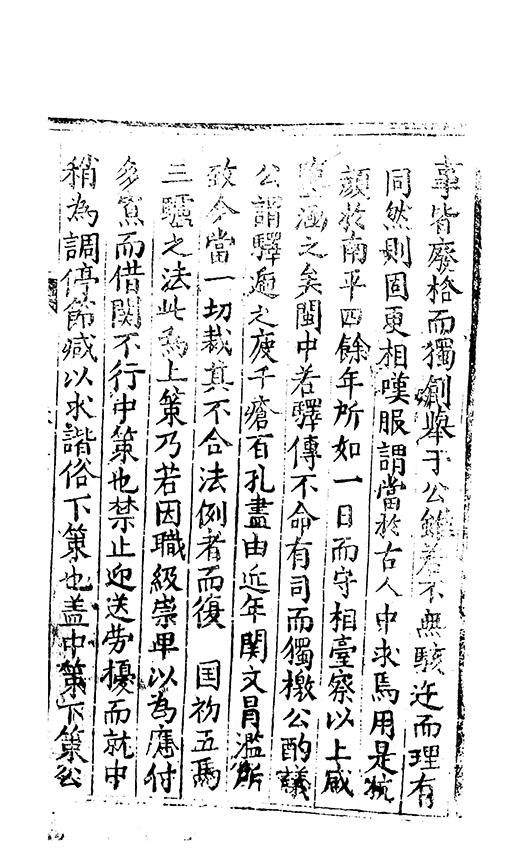 事皆廢格而獨創舉于公雖若不無駭迕而理有
同然則固更相嘆服謂當於古人中求焉用是抗
顔於南平四餘年所如一日而守相臺察以上咸
涵之矣閩中若驛傳不命有司而獨檄公酌議
公謂驛遞之疲千瘡百孔盡由近年関文冐濫所
致今當一切裁其不合法例者而復 国初五馬
三驢之法此為上策乃若因職級崇卑以為應付
多寡而借関不行中策也禁止迎送労擾而就中
稍為調停節减以求諧俗下策也盖中策下策公